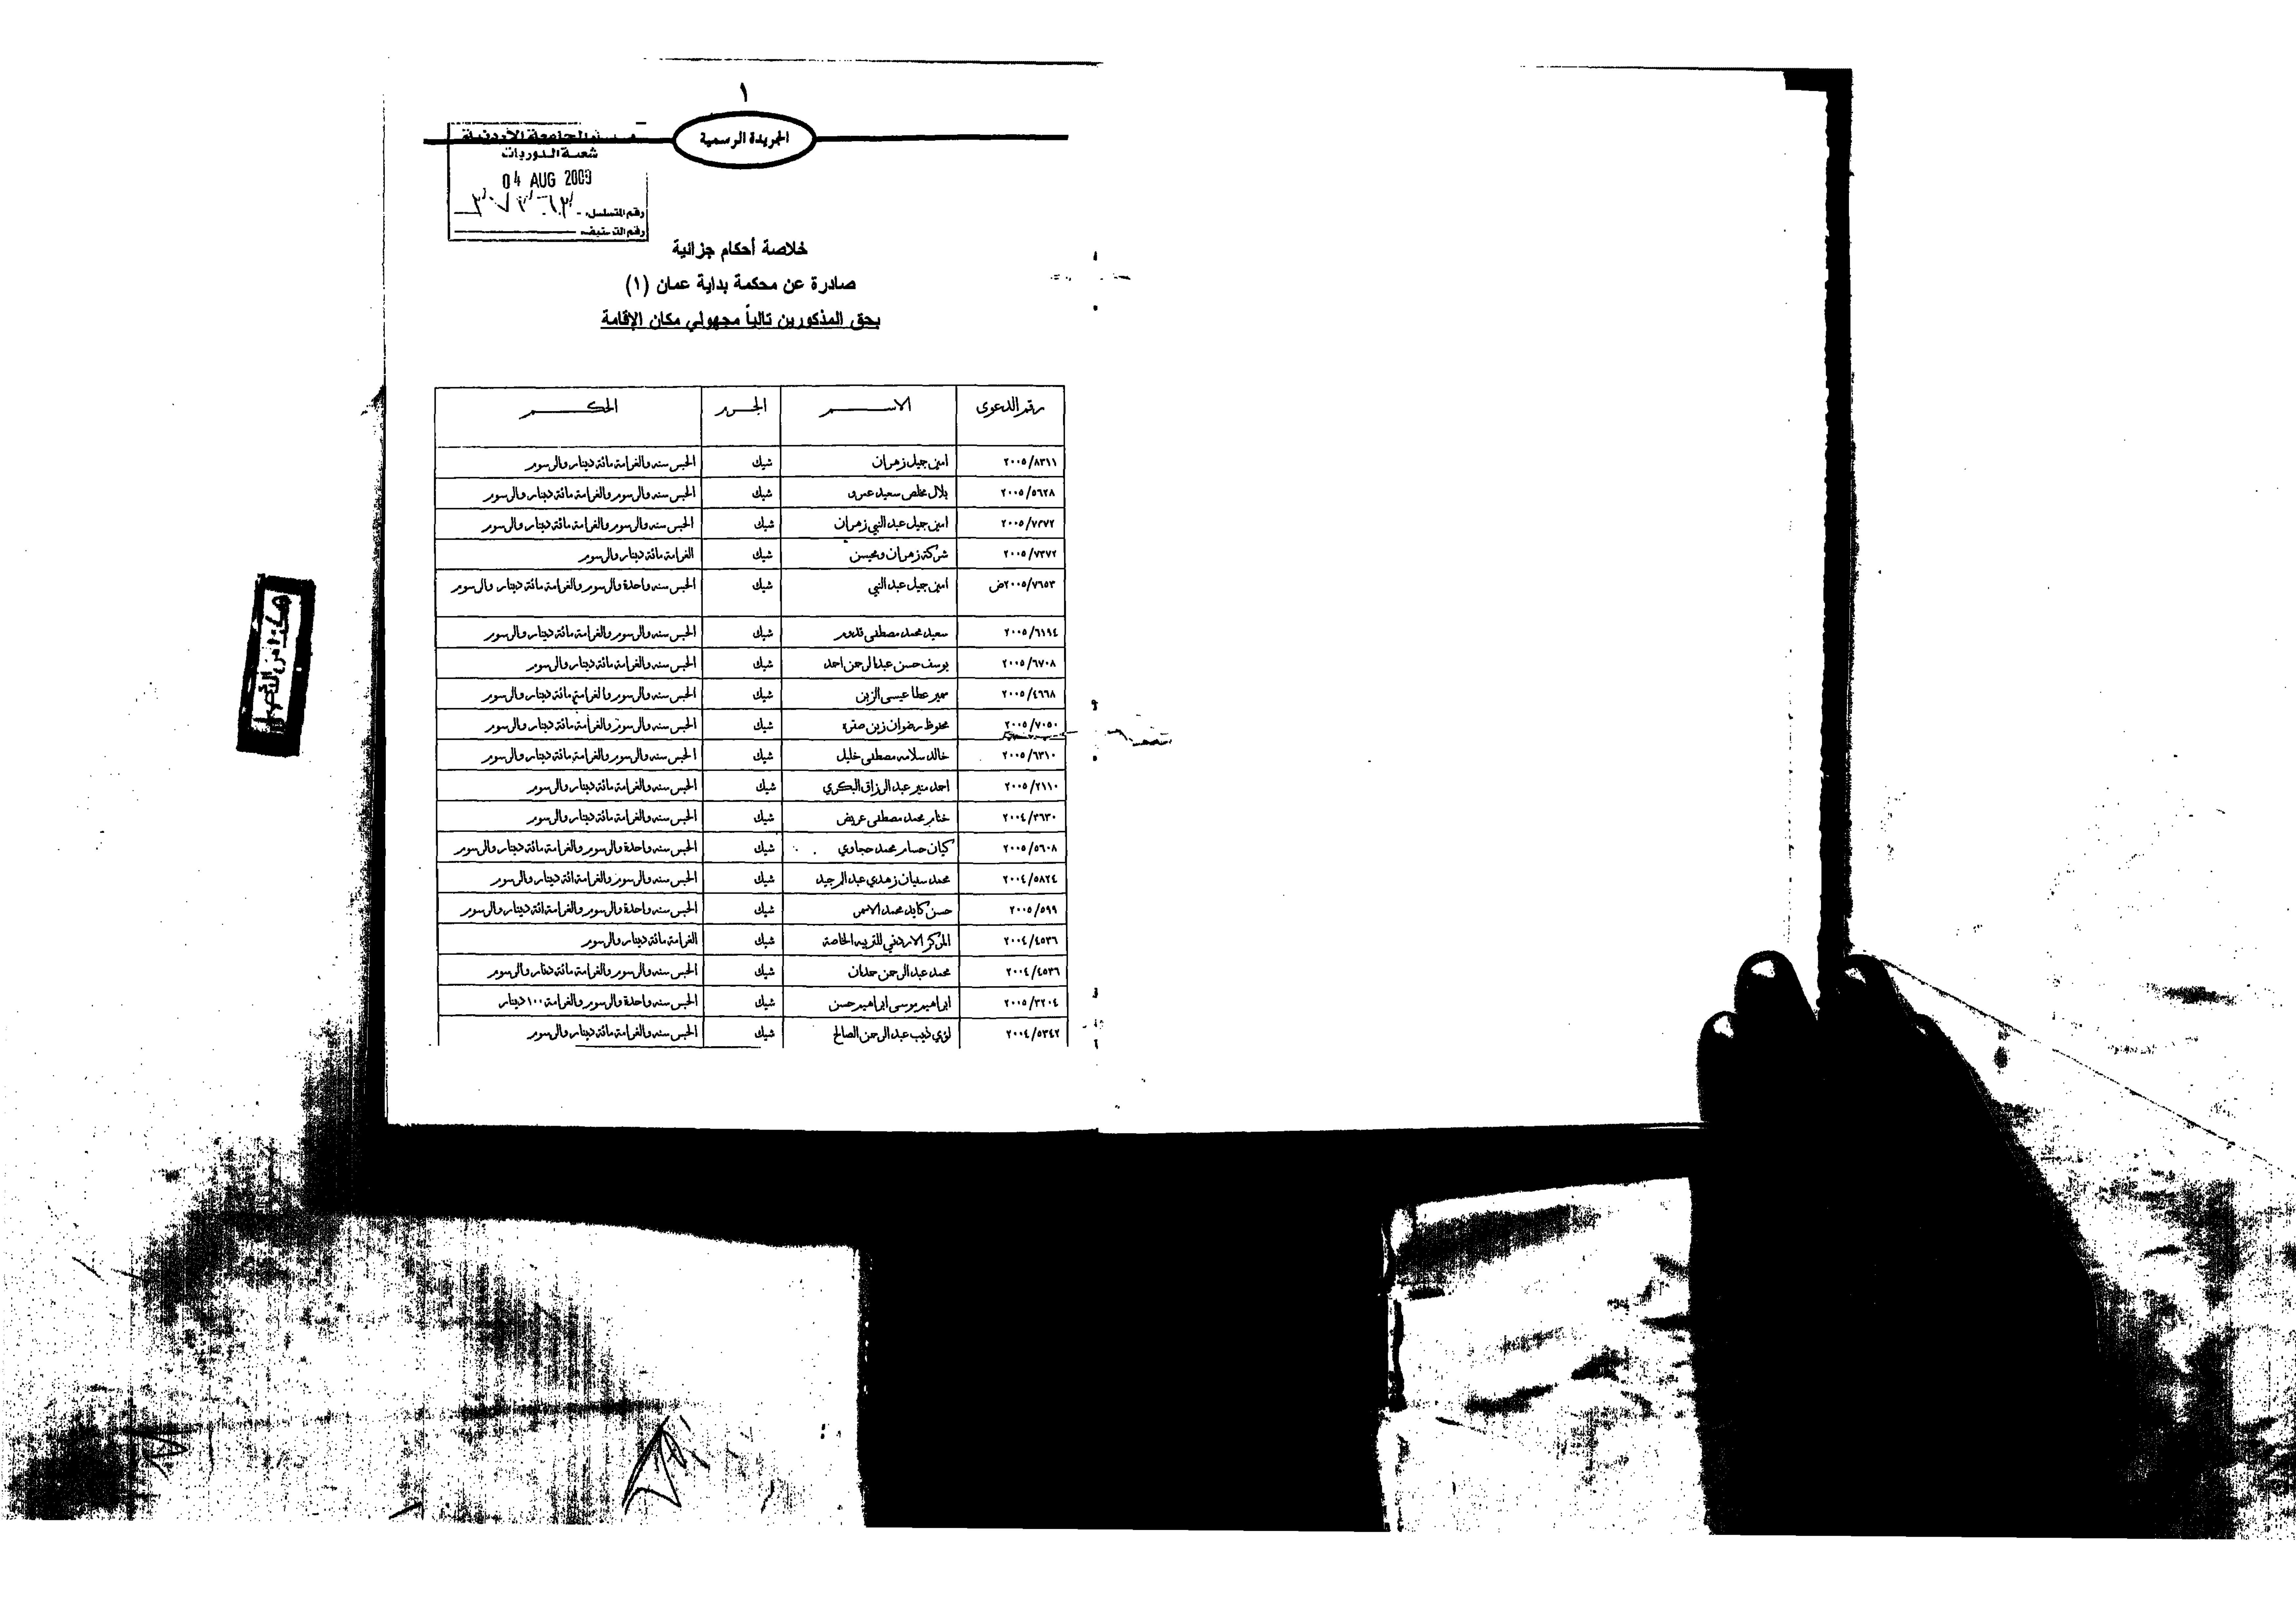 ١
الجريدة الرسمية
الجامعة الأردنية
شعبة الدوريات
04 AUG 2009
رقم المتسلسل
رقم التصنيف
خلاصة أحكام جزائية
صادرة عن محكمة بداية عمان (١)
بحق المذكورين تالياً مجهولي مكان الإقامة
رقم الدعوى الاسم الجرم الحكم
٢٠٠٥/٨٣١١ امين جميل زهران شيك الحبس سنه والغرامة مائة دينار والرسوم
٢٠٠٥/٥٦٢٨ بلال مخلص سعيد عمرو شيك الحبس سنه والرسوم والغرامة مائة دينار والرسوم
٢٠٠٥/٧٣٧٢ امين جميل عبد النبي زهران شيك الحبس سنه والرسوم والغرامة مائة دينار والرسوم
٢٠٠٥/٧٣٧٢ شركة زهران ومحيسن شيك الغرامة مائة دينار والرسوم
٢٠٠٥/٧٦٥٣ض امين جميل عبد النبي شيك الحبس سنه واحدة والرسوم والغرامة مائة دينار والرسوم
٢٠٠٥/٦١٩٤ سعيد محمد مصطفى قدوم شيك الحبس سنه والرسوم والغرامة مائة دينار والرسوم
٢٠٠٥/٦٧٠٨ يوسف حسن عبد الرحمن احمد شيك الحبس سنه والغرامة مائة دينار والرسوم
٢٠٠٥/٤٦٦٨ سمير عطا عيسى الزبن شيك الحبس سنه والرسوم والغرامة مائة دينار والرسوم
٢٠٠٥/٧٠٥٠ محفوظ رضوان زين صقره شيك الحبس سنه والرسوم والغرامة مائة دينار والرسوم
٢٠٠٥/٦٣١٠ خالد سلامه مصطفى خليل شيك الحبس سنه والرسوم والغرامة مائة دينار والرسوم
٢٠٠٥/٢١١٠ احمد منير عبد الرزاق البكري شيك الحبس سنه والغرامة مائة دينار والرسوم
٢٠٠٤/٣٦٣٠ ختام محمد مصطفى عريض شيك الحبس سنه والغرامة مائة دينار والرسوم
٢٠٠٥/٥٦٠٨ كيان حسام محمد حجاوي شيك الحبس سنه واحدة والرسوم والغرامة مائة دينار والرسوم
٢٠٠٤/٥٨٢٤ محمد سفيان زهدي عبد المجيد شيك الحبس سنه والرسوم والغرامة مائة دينار والرسوم
٢٠٠٥/٥٩٩ حسن كايد محمد الاسمر شيك الحبس سنه واحدة والرسوم والغرامة مائة دينار والرسوم
٢٠٠٤/٤٥٣٦ المركز الاردني للتربيه الخاصة شيك الغرامة مائة دينار والرسوم
٢٠٠٤/٤٥٣٦ محمد عبد الرحمن حمدان شيك الحبس سنه والرسوم والغرامة مائة دينار والرسوم
٢٠٠٥/٣٢٠٤ ابراهيم موسى ابراهيم حسن شيك الحبس سنه واحدة والرسوم والغرامة ١٠٠ دينار
٢٠٠٤/٥٣٤٢ لؤي ذيب عبد الرحمن الصالح شيك الحبس سنه والغرامة مائة دينار والرسوم
هكذا من الأصل